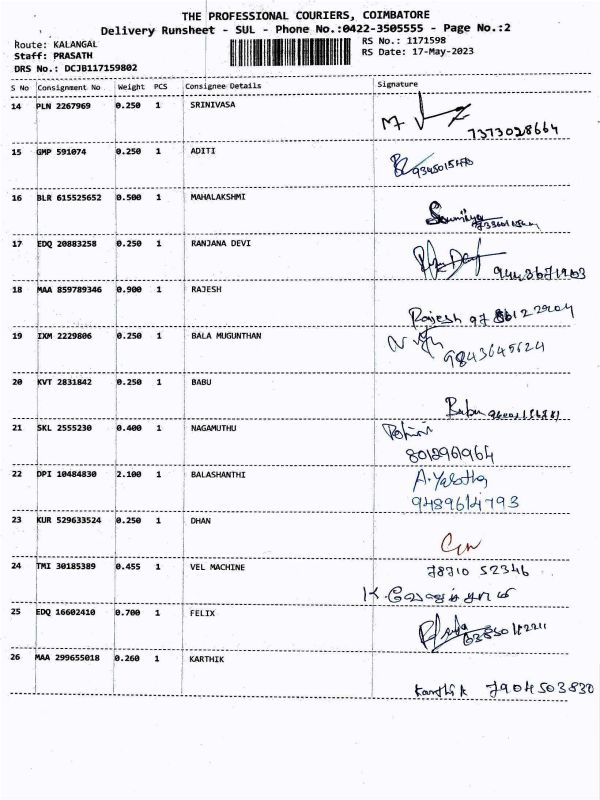 THE PROFESSIONAL COURIERS, COIMBATORE
Delivery Runsheet - SUL - Phone No.:0422-3505555 - Page No.:2
Route: KALANGAL
RS No.: 1171598
Staff: PRASATH
RS Date: 17-May-2023
DRS No.: DCJB117159802
S No Consignment No Weight PCS Consignee Details Signature
14 PLN 2267969 0.250 1 SRINIVASA
7373028664
15 GMP 591074 0.250 1 ADITI
16 BLR 615525652 0.500 1 MAHALAKSHMI
17 EDQ 20883258 0.250 1 RANJANA DEVI
18 MAA 859789346 0.900 1 RAJESH
Rajesh
19 IXM 2229806 0.250 1 BALA MUGUNTHAN
9843645624
20 KVT 2831842 0.250 1 BABU
Babu
21 SKL 2555230 0.400 1 NAGAMUTHU
8012961964
22 DPI 10484830 2.100 1 BALASHANTHI
9489614793
23 KUR 529633524 0.250 1 DHAN
24 TMI 30185389 0.455 1 VEL MACHINE
78710 52346
25 EDQ 16602410 0.700 1 FELIX
26 MAA 299655018 0.260 1 KARTHIK
Karthik 7904503830